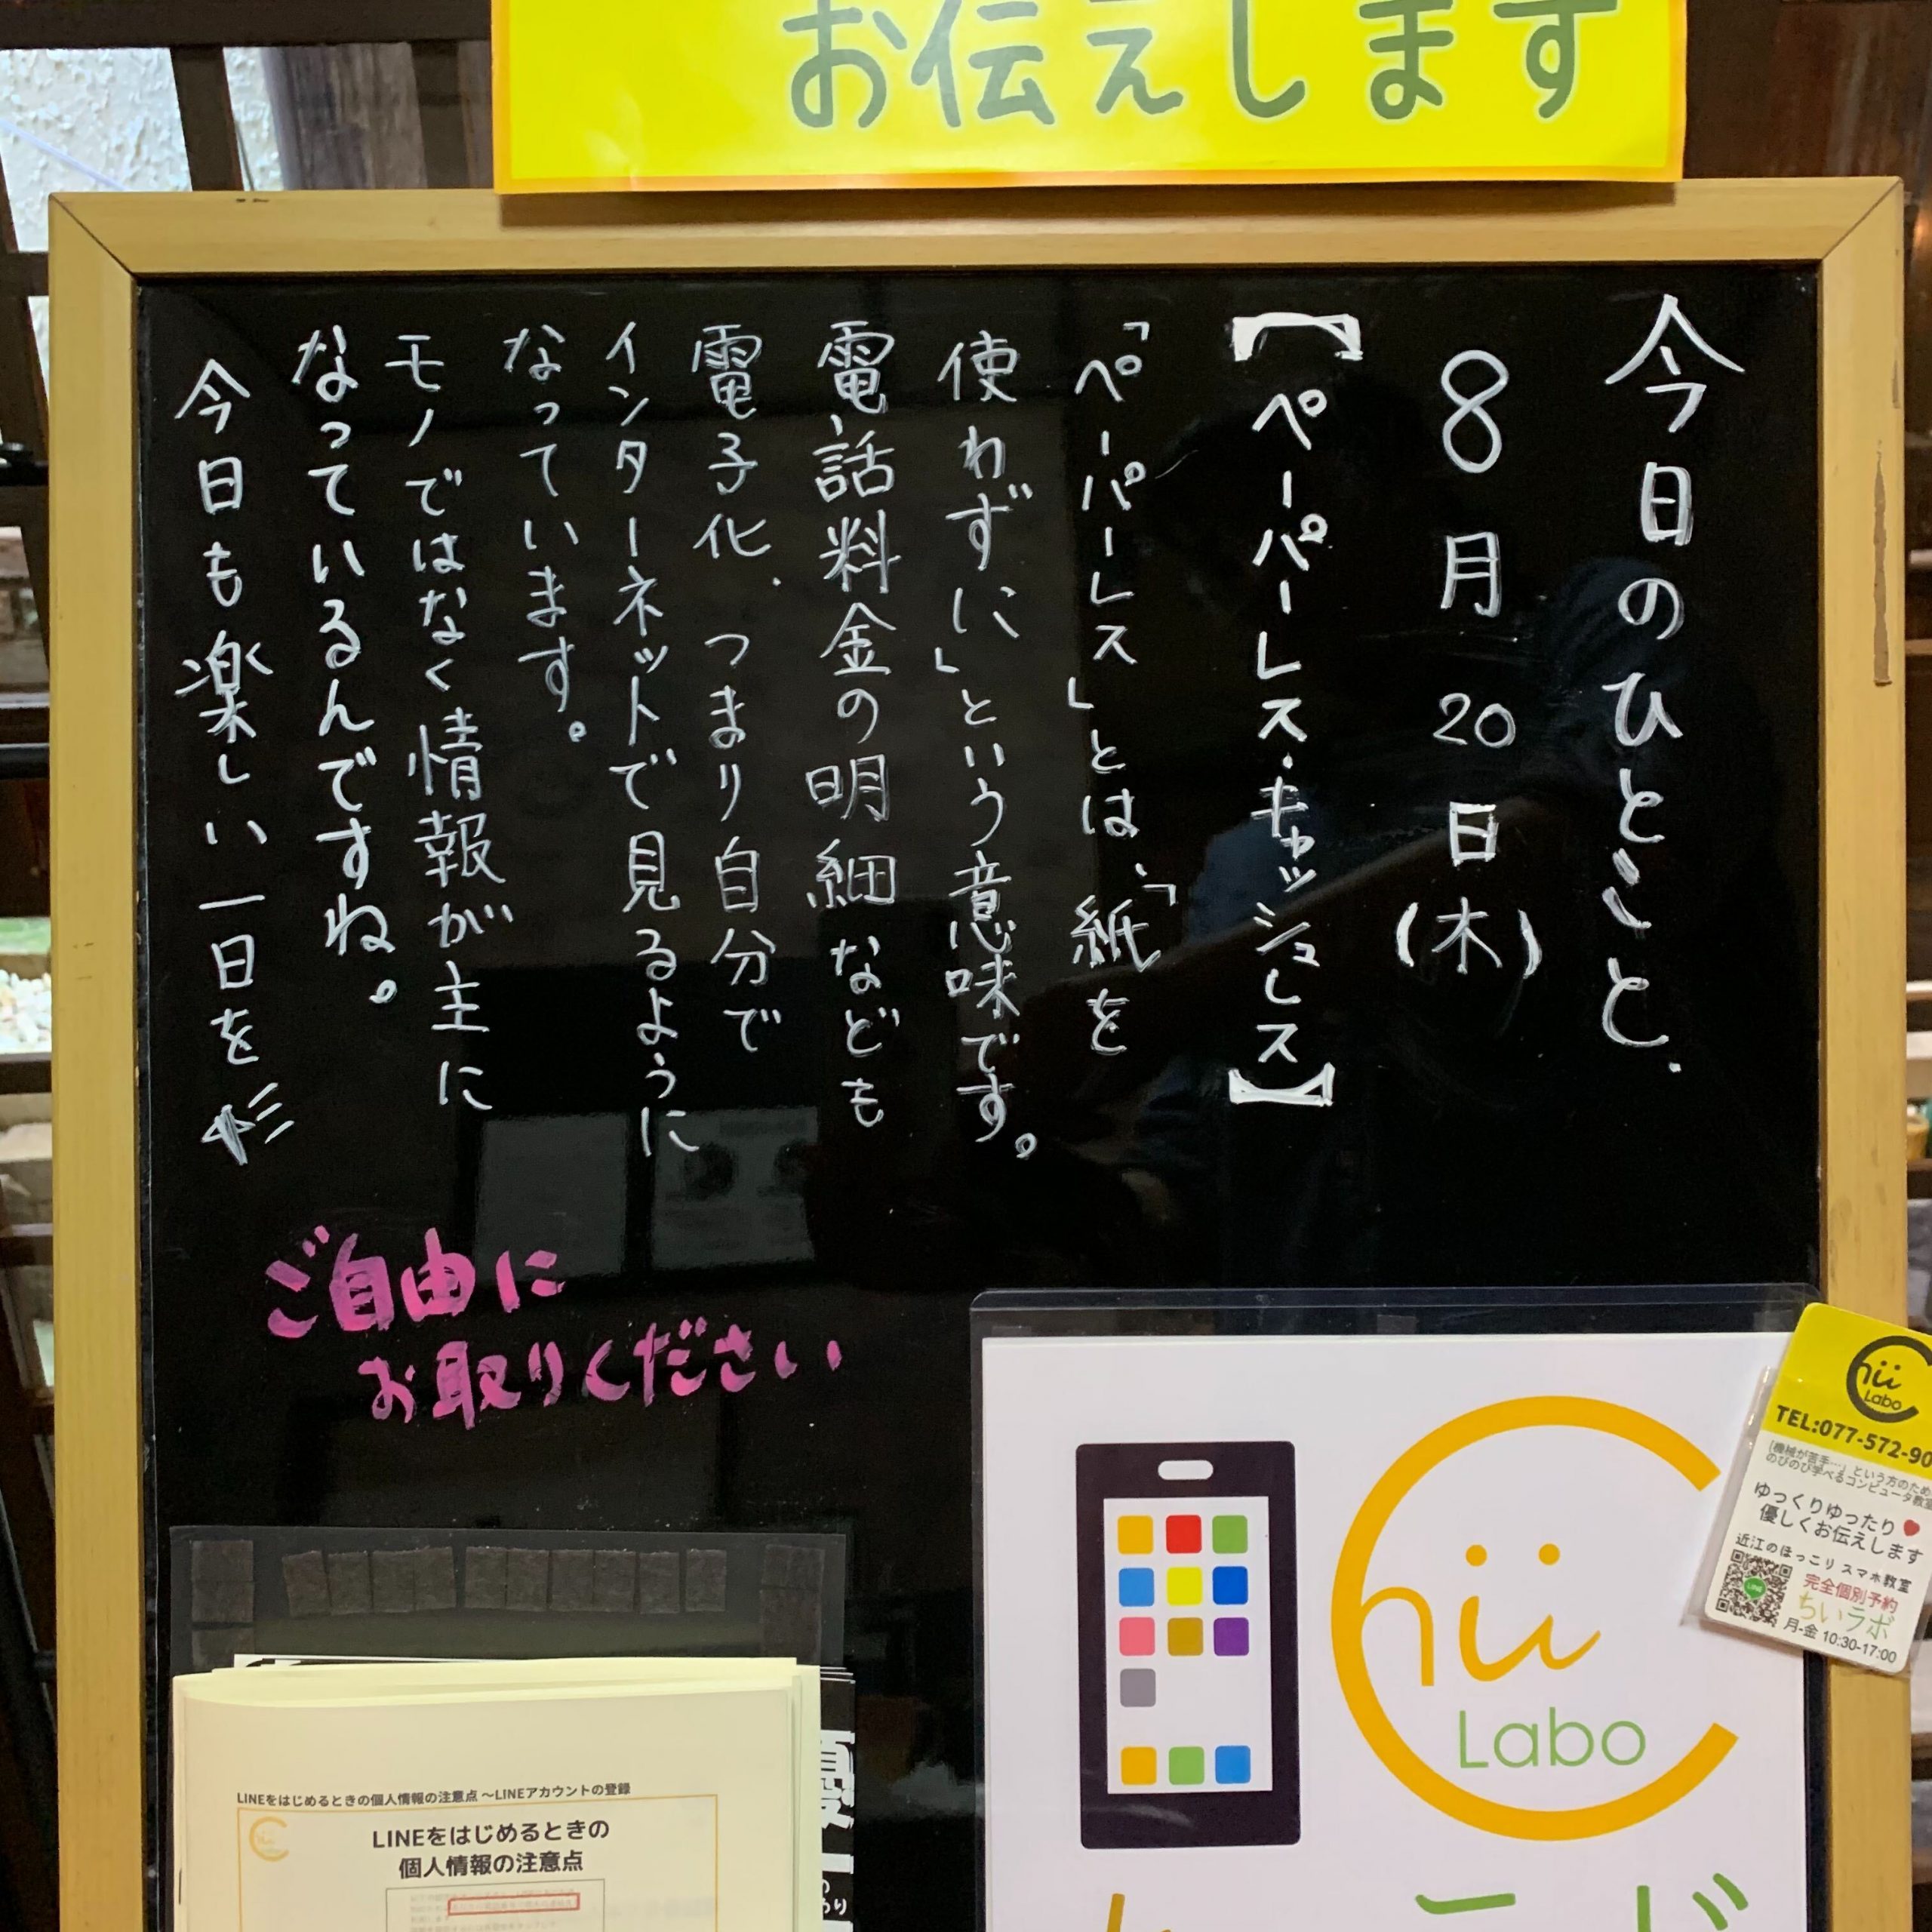 お伝えします
今日のひとこと.
8月20日(木)
【ペーパーレス・キャッシュレス】
「ペーパーレス」とは、「紙を
使わずに」という意味です。
電話料金の明細なども
電子化、つまり自分で
インターネットで見るように
なっています。
モノではなく情報が主に
なっているんですね。
今日も楽しい一日を
ご自由に
お取りください
Chii
Labo
TEL:077-572-90
「機械が苦手…」という方のため
のびのび学べるコンピュータ教室
ゆっくりゆったり
優しくお伝えします
近江のほっこりスマホ教室
LINE
完全個別予約
ちいラボ
月-金 10:30-17:00
Chii
Labo
LINEをはじめるときの個人情報の注意点 〜LINEアカウントの登録
LINEをはじめるときの
個人情報の注意点